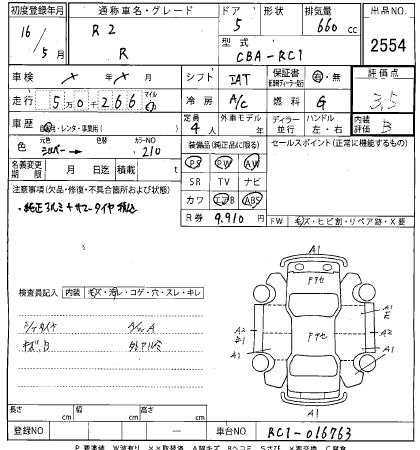 初度登録年月 通称車名・グレード ドア 形状 排気量 出品NO.
16 / 5月 R2 R 5 660 cc 2554
型式 CBA-RC1
車検 × 年 × 月 シフト IAT 保証書 有・無 評価点
走行 5万0千266 冷房 A/c 燃料 G 3.5
車歴 自家用・レンタ・事業用( ) 定員 4人 外車モデル 年 ディーラー 並行 ハンドル 左・右 内装評価 B
色 シルバー カラーNO 210 装備品(純正品に限る) セールスポイント(正常に機能するもの)
名義変更期限 月 日迄 積載 t PS PW AW
注意事項(欠品・修復・不具合箇所および状態) SR TV ナビ
カワ エアB ABS
R券 9,910円 FW キズ・ヒビ割・リペア跡・X要
A1
ドアセ
検査員記入 内装 キズ・汚レ・コゲ・穴・スレ・キレ
A1 E
A2 A2
E1
A1 A1
キズ、B
A1
長さ cm 幅 cm 高さ cm
登録NO 車台NO RC1-016763